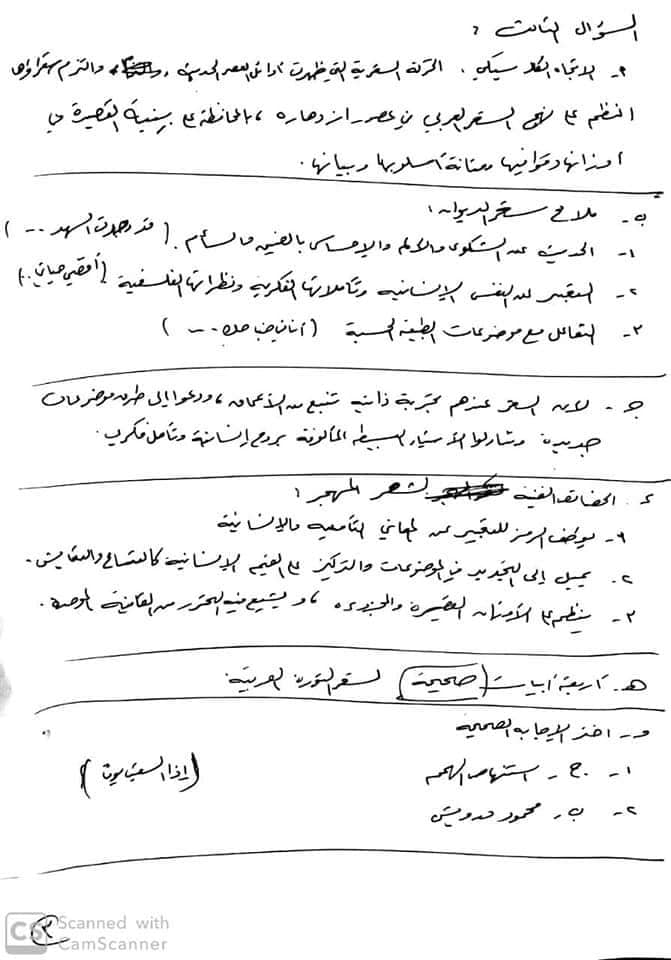 السؤال الثالث :
أ- الاتجاه الكلاسيكي : الحركة الشعرية التي ظهرت أوائل العصر الحديث، والتزم شعراؤها
النظم على نهج الشعر العربي في عصور ازدهاره، بالمحافظة على بنية القصيدة في
أوزانها وقوافيها ومتانة أسلوبها وبيانها.
ب- ملامح شعر الديوان :
١- الحديث عن الشكوى والألم والإحساس بالضيق والسأم . ( قد وجدت السهد ... )
٢- التعبير عن النفس الإنسانية وتأملاتها الفكرية ونظراتها الفلسفية . ( أقضي حياتي .. )
٣- التفاعل مع موضوعات الطبيعة الحسية ( ... )
ج- لأن الشعر عندهم تجربة ذاتية تنبع من الأعماق ، ودعوا إلى طرق موضوعات
جديدة وتناولوا الأشياء البسيطة المألوفة بروح إنسانية وتأمل فكري .
د- الخصائص الفنية لشعر المهجر :
١- يوظف الرمز للتعبير عن المعاني التأملية والإنسانية
٢- يميل إلى التجديد في الموضوعات والتركيز على القيم الإنسانية كالتسامح والتعايش .
٣- ينظم على الأوزان القصيرة والمجزوءة ، ويشيع فيه التحرر من القافية الموحدة .
هـ- أربعة أبيات ( صحيحة ) لشعر الثورة العربية .
و- اختر الإجابة الصحيحة
١- ج - استنهاض الهمم ( إذا الشعب يوما )
٢- ب- محمود درويش
٣
Scanned with
CS CamScanner